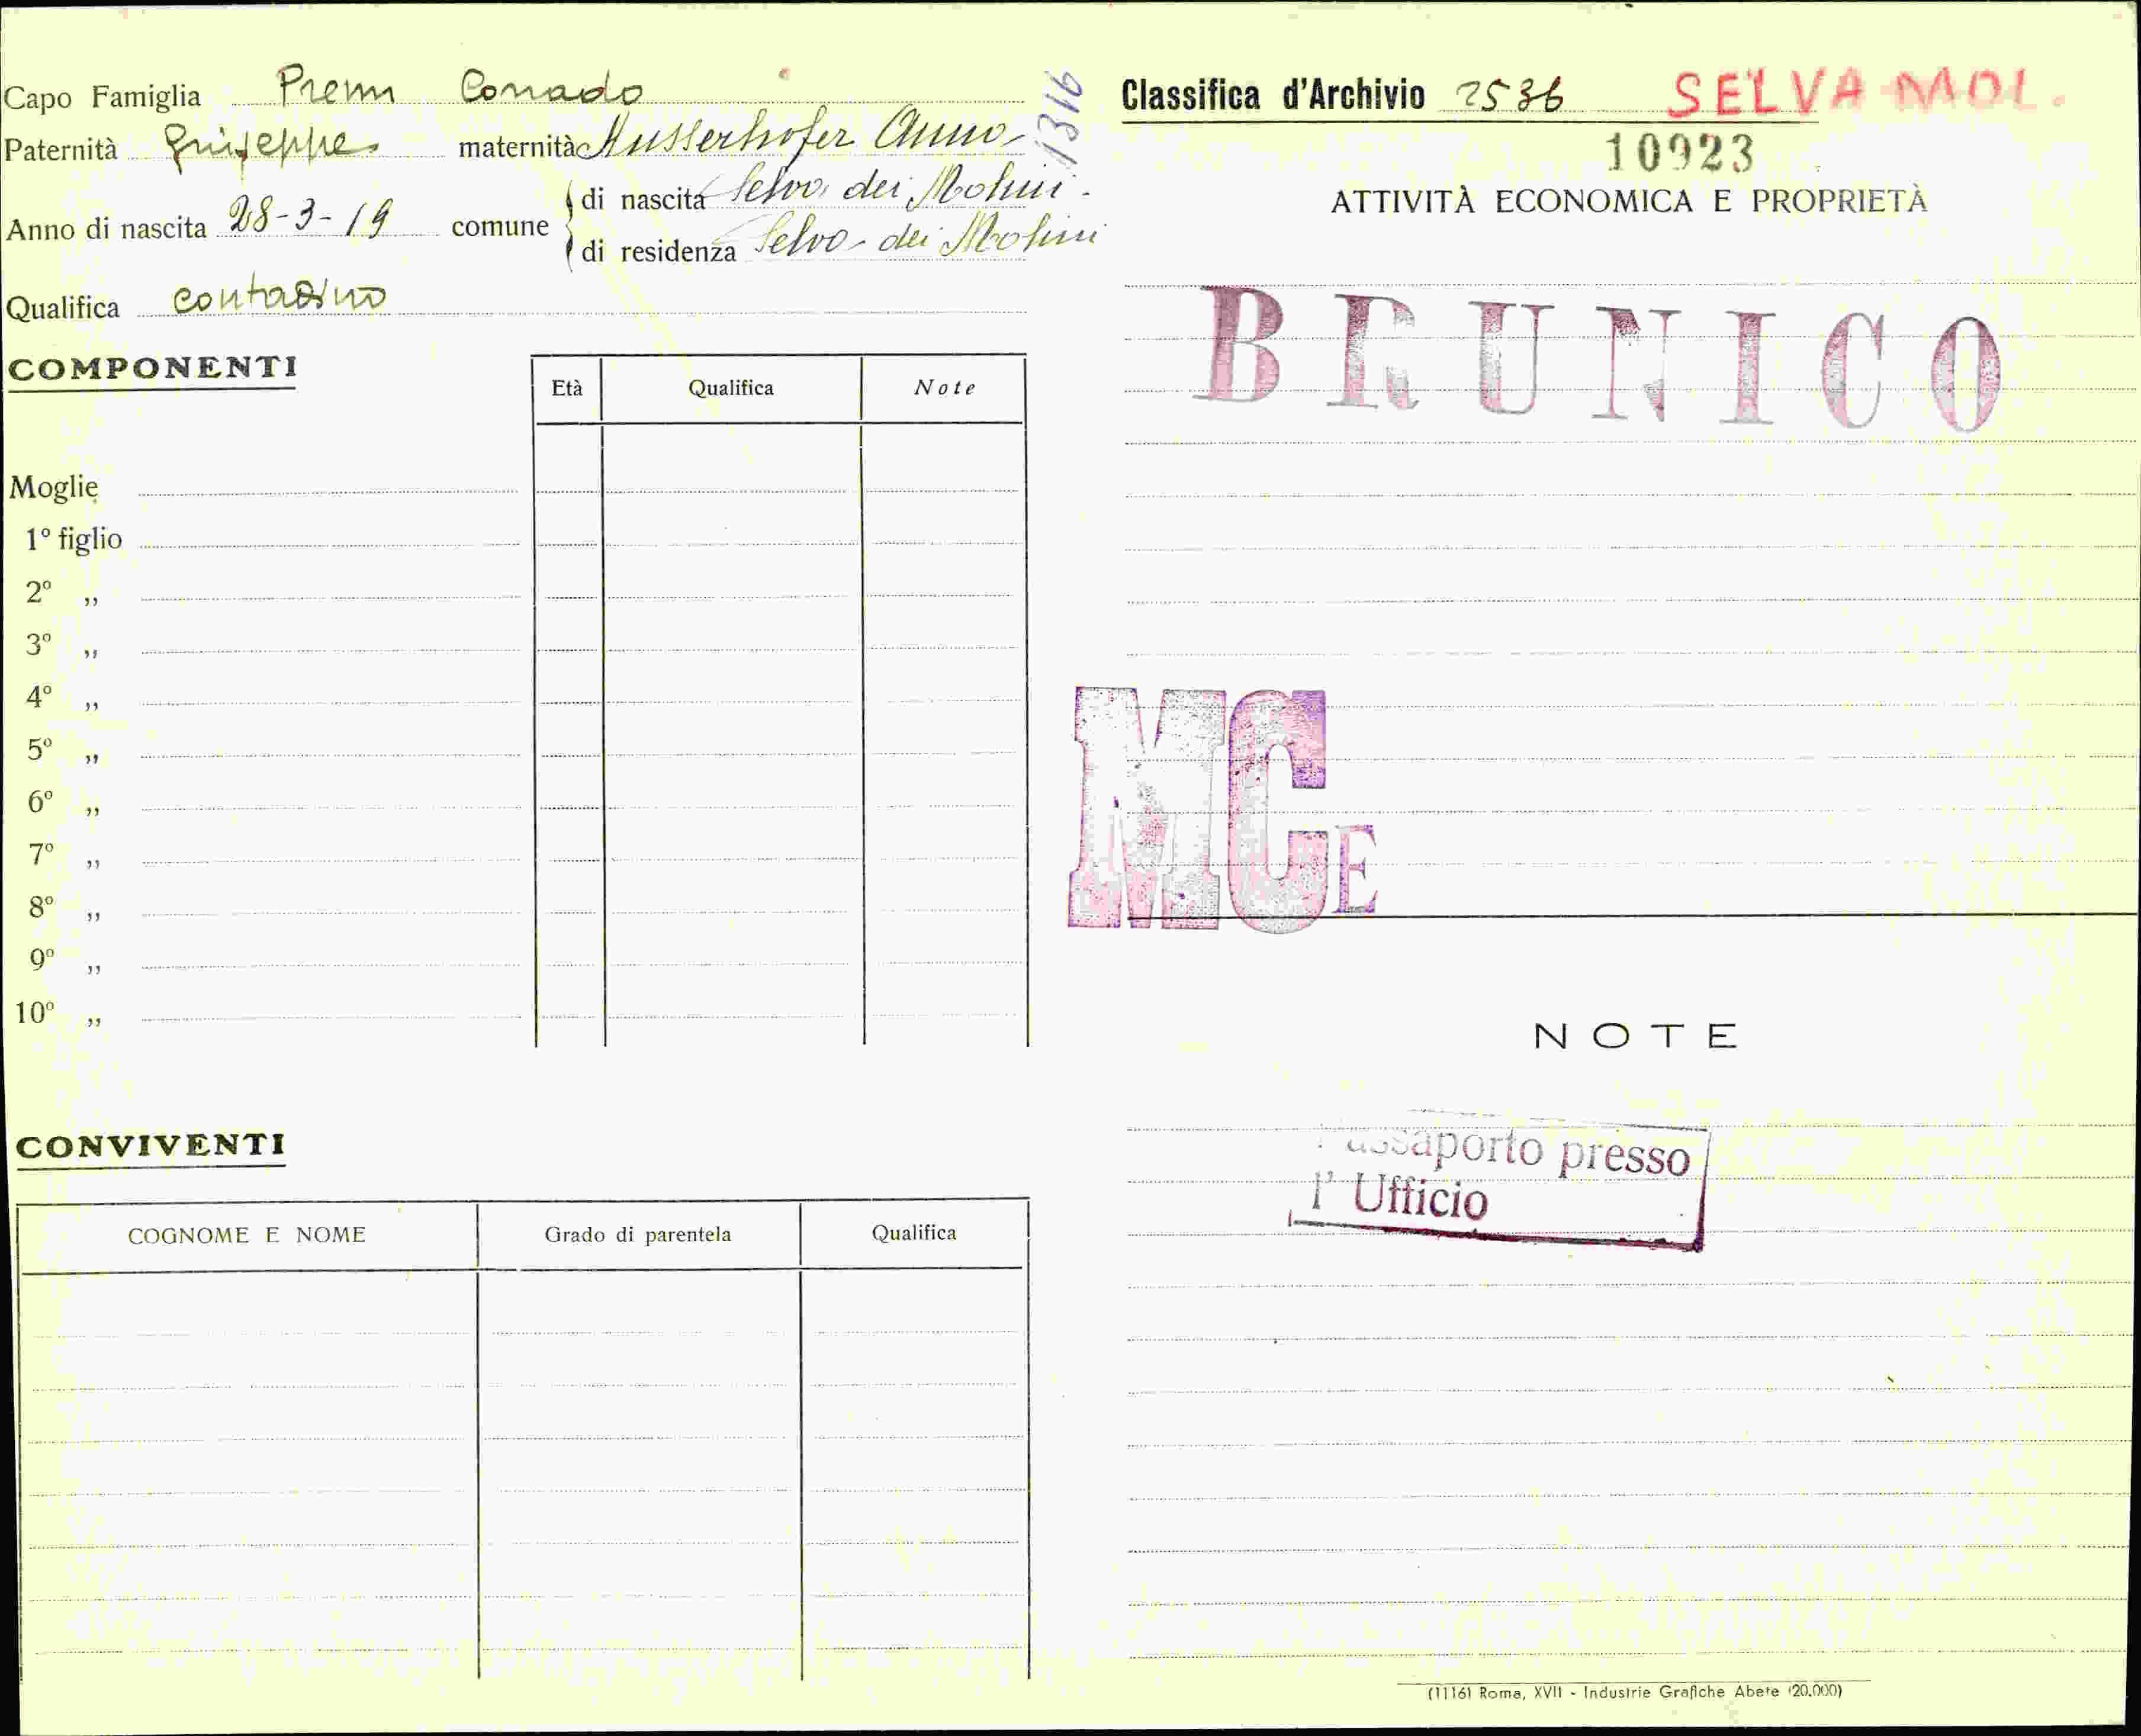 Capo Famiglia Prenn Corrado
Paternità Giuseppe maternità Ausserhofer Anna
Anno di nascita 28-3-19 comune di nascita Selva dei Molini
di residenza Selva dei Molini
Qualifica contadino
1316
COMPONENTI
Età Qualifica Note
Moglie
1º figlio
2º „
3º „
4º „
5º „
6º „
7º „
8º „
9º „
10º „
CONVIVENTI
COGNOME E NOME Grado di parentela Qualifica
Classifica d'Archivio 2536 SELVA MOL.
10923
ATTIVITÀ ECONOMICA E PROPRIETÀ
BRUNICO
MCE
NOTE
Passaporto presso
l' Ufficio
(1116) Roma, XVII - Industrie Grafiche Abete (20.000)